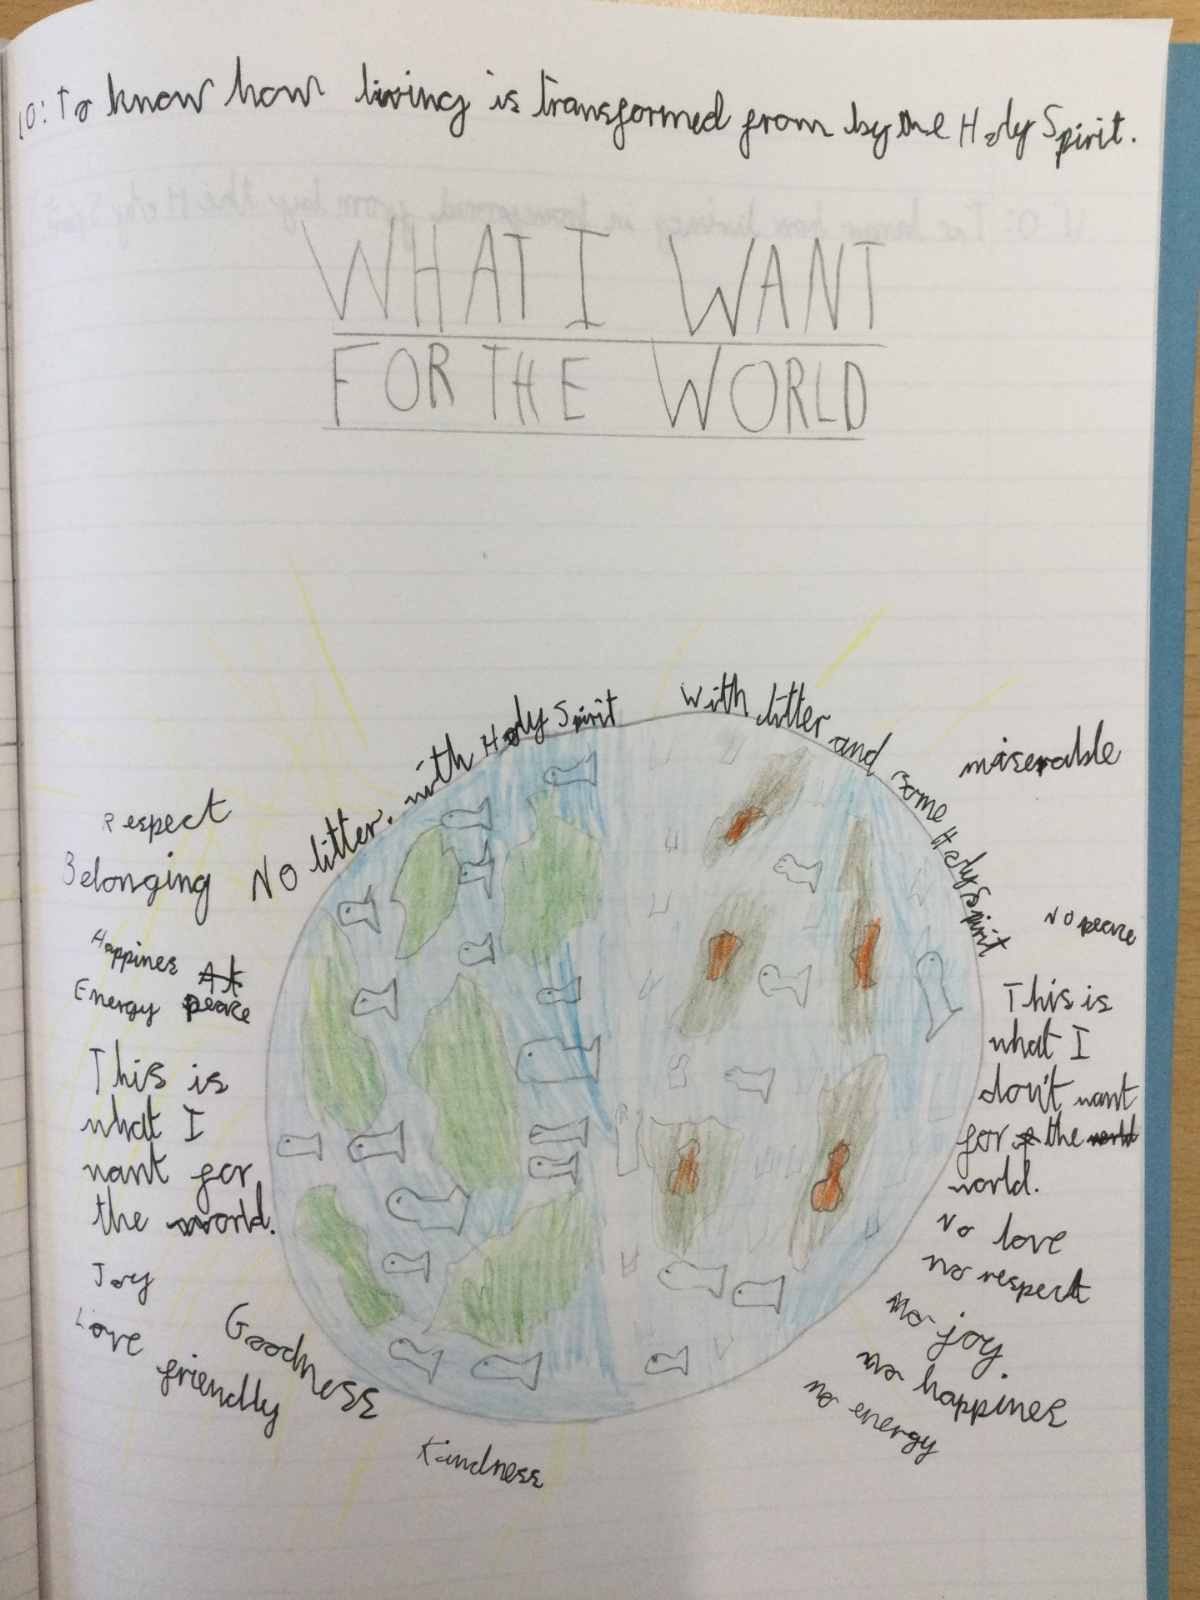 LO: To know how living is transformed from by the Holy Spirit.
WHAT I WANT
FOR THE WORLD
No litter, with Holy Spirit
With litter and some Holy Spirit
Respect
Belonging
Happines At
Energy peace
This is
what I
want for
the world.
Joy
Love
friendly
Goodness
Kindness
miserable
No peace
This is
what I
don't want
for the world
world.
No love
no respect
No joy
no happines
no energy